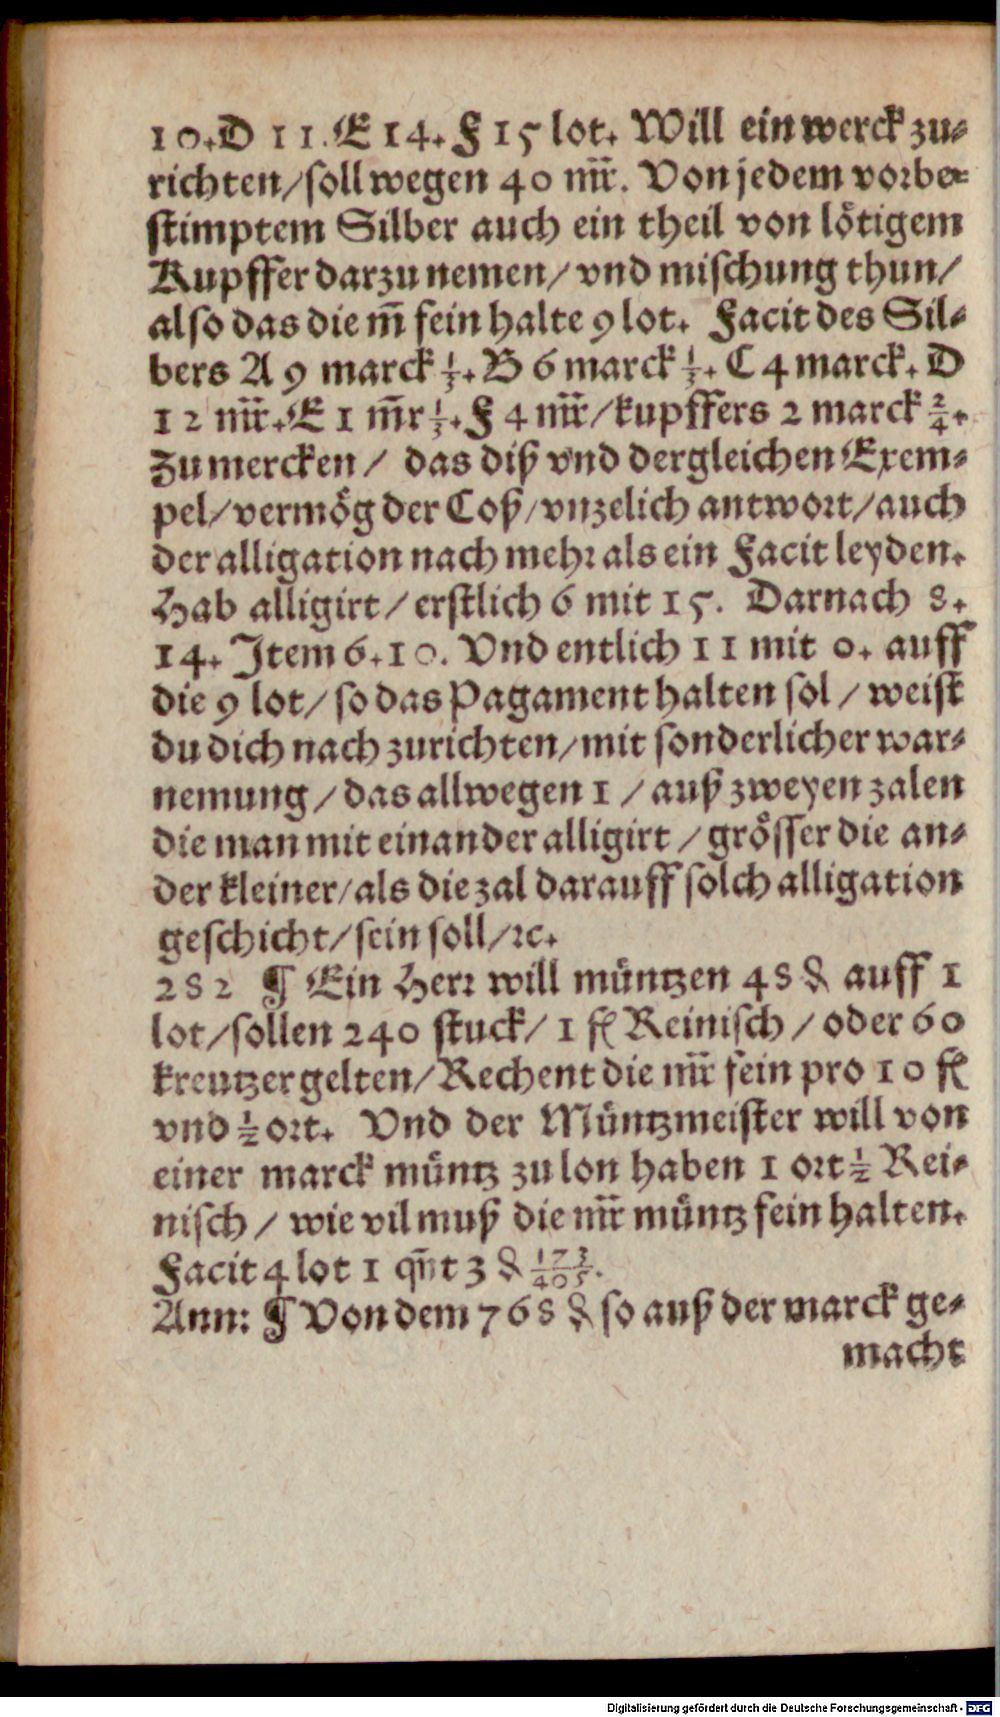 10.D 11.E 14. F 15 lot. Will ein werck zu⸗
richten/soll wegen 40 mr̃. Von jedem vorbe⸗
stimptem Silber auch ein theil von lötigem
Kupffer darzu nemen/ vnd mischung thun/
also das die m̃ fein halte 9 lot. Facit des Sil⸗
bers A 9 marck ⅓. B 6 marck ⅓. C 4 marck. D
12 mr̃. E 1 m̃r ⅓. F 4 mr̃/kupffers 2 marck 2/4.
Zu mercken/ das diß vnd dergleichen Exem⸗
pel/vermög der Coß/vnzelich antwort/auch
der alligation nach mehr als ein Facit leyden.
Hab alligirt/erstlich 6 mit 15. Darnach 8.
14. Item 6.10. Vnd entlich 11 mit 0. auff
die 9 lot/so das Pagament halten sol/weist
du dich nach zurichten/mit sonderlicher war⸗
nemung/das allwegen 1/auß zweyen zalen
die man mit einander alligirt/grösser die an⸗
der kleiner/als die zal darauff solch alligation
geschicht/sein soll/ꝛc.
282 ¶ Ein Herr will müntzen 48 ₰ auff 1
lot/sollen 240 stuck/1 fl Reinisch/oder 60
kreutzer gelten/Rechent die mr̃ fein pro 10 fl
vnd ½ ort. Vnd der Müntzmeister will von
einer marck müntz zu lon haben 1 ort ½ Rei⸗
nisch/wie vil muß die mr̃ müntz fein halten.
Facit 4 lot 1 qñt 3 ₰ 173/405.
Ann: ¶ Von dem 768 ₰ so auß der marck ge⸗
macht
Digitalisierung gefördert durch die Deutsche Forschungsgemeinschaft - DFG